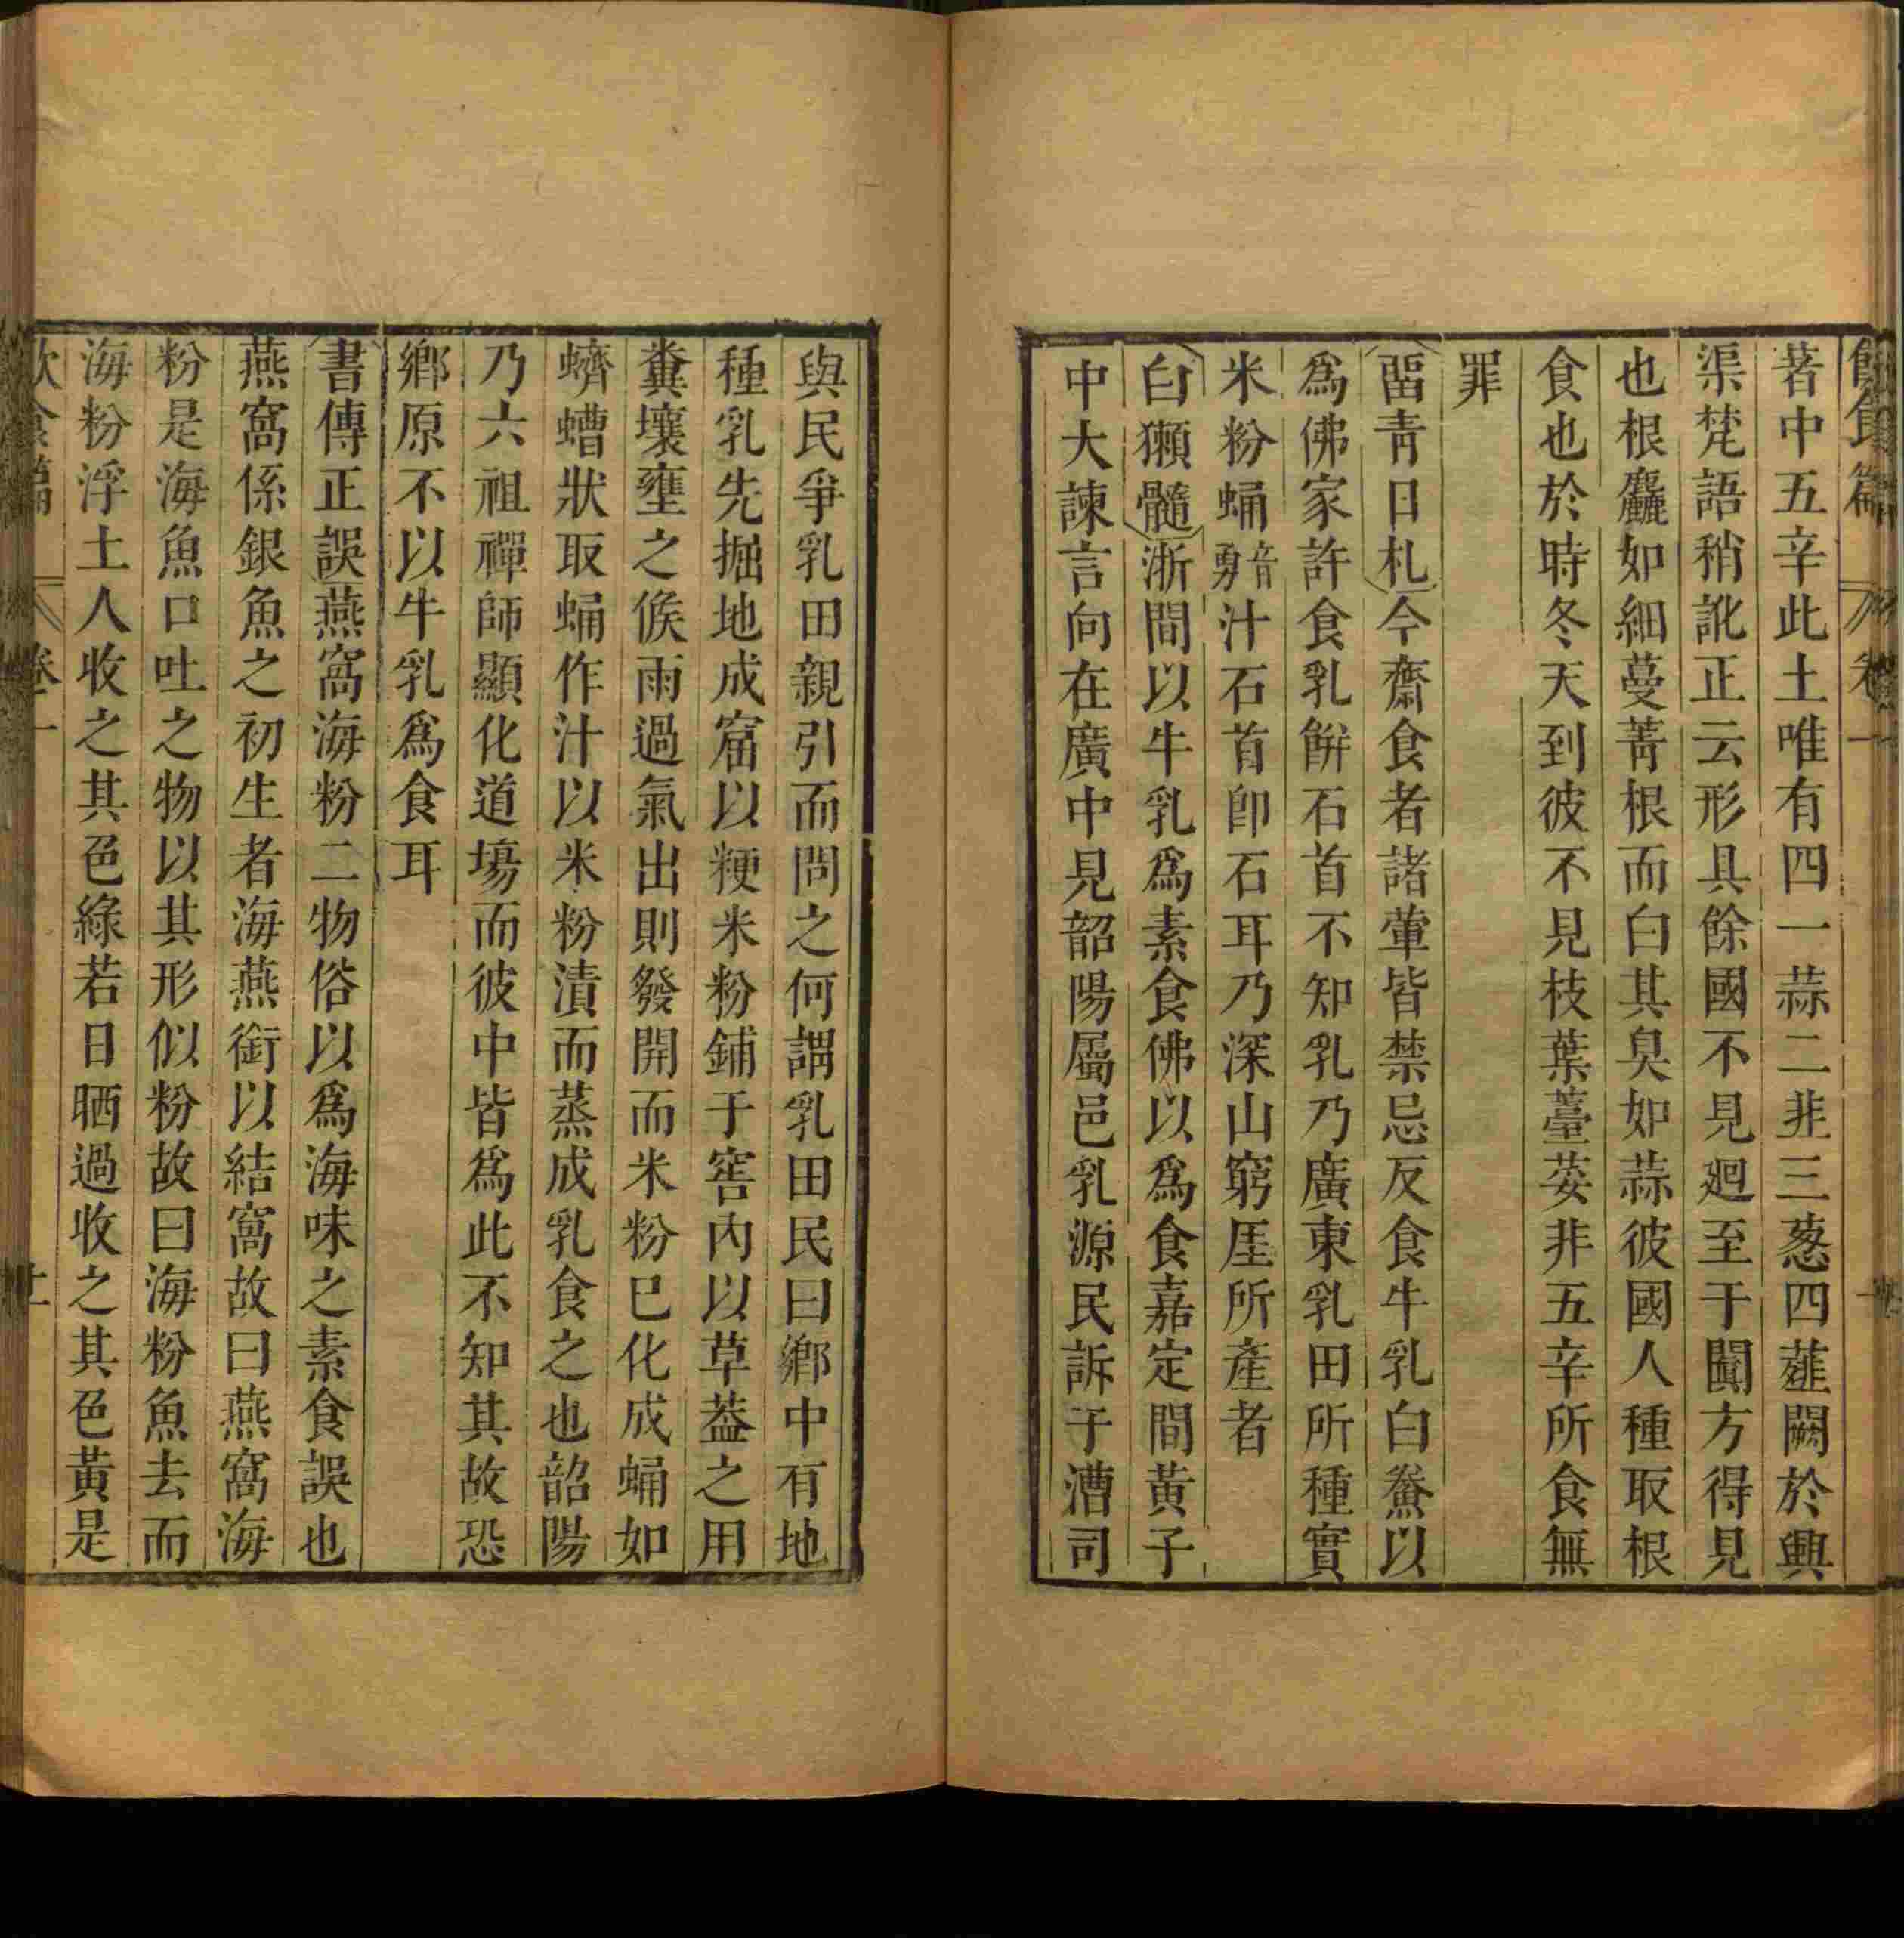 飲食篇 卷一
著中五辛此土唯有四一蒜二韭三葱四薤闕於興
渠梵語稍訛正云形具餘國不見廻至于闐方得見
也根麤如細蔓菁根而白其臭如蒜彼國人種取根
食也於時冬天到彼不見枝葉薹荽非五辛所食無
罪
留青日札今齋食者諸葷皆禁忌反食牛乳白鯗以
爲佛家許食乳餅石首不知乳乃廣東乳田所種實
米粉蛹音勇汁石首卽石耳乃深山窮厓所產者
白獺髓浙間以牛乳爲素食佛以爲食嘉定間黃子
中大諫言向在廣中見韶陽屬邑乳源民訴于漕司
與民爭乳田親引而問之何謂乳田民曰鄉中有地
種乳先掘地成窟以粳米粉鋪于窖內以草葢之用
糞壤壅之候雨過氣出則發開而米粉已化成蛹如
蠐螬狀取蛹作汁以米粉漬而蒸成乳食之也韶陽
乃六祖禪師顯化道場而彼中皆爲此不知其故恐
鄉原不以牛乳爲食耳
書傳正誤燕窩海粉二物俗以爲海味之素食誤也
燕窩係銀魚之初生者海燕銜以結窩故曰燕窩海
粉是海魚口吐之物以其形似粉故曰海粉魚去而
海粉浮土人收之其色綠若日晒過收之其色黃是
飲食篇 卷一